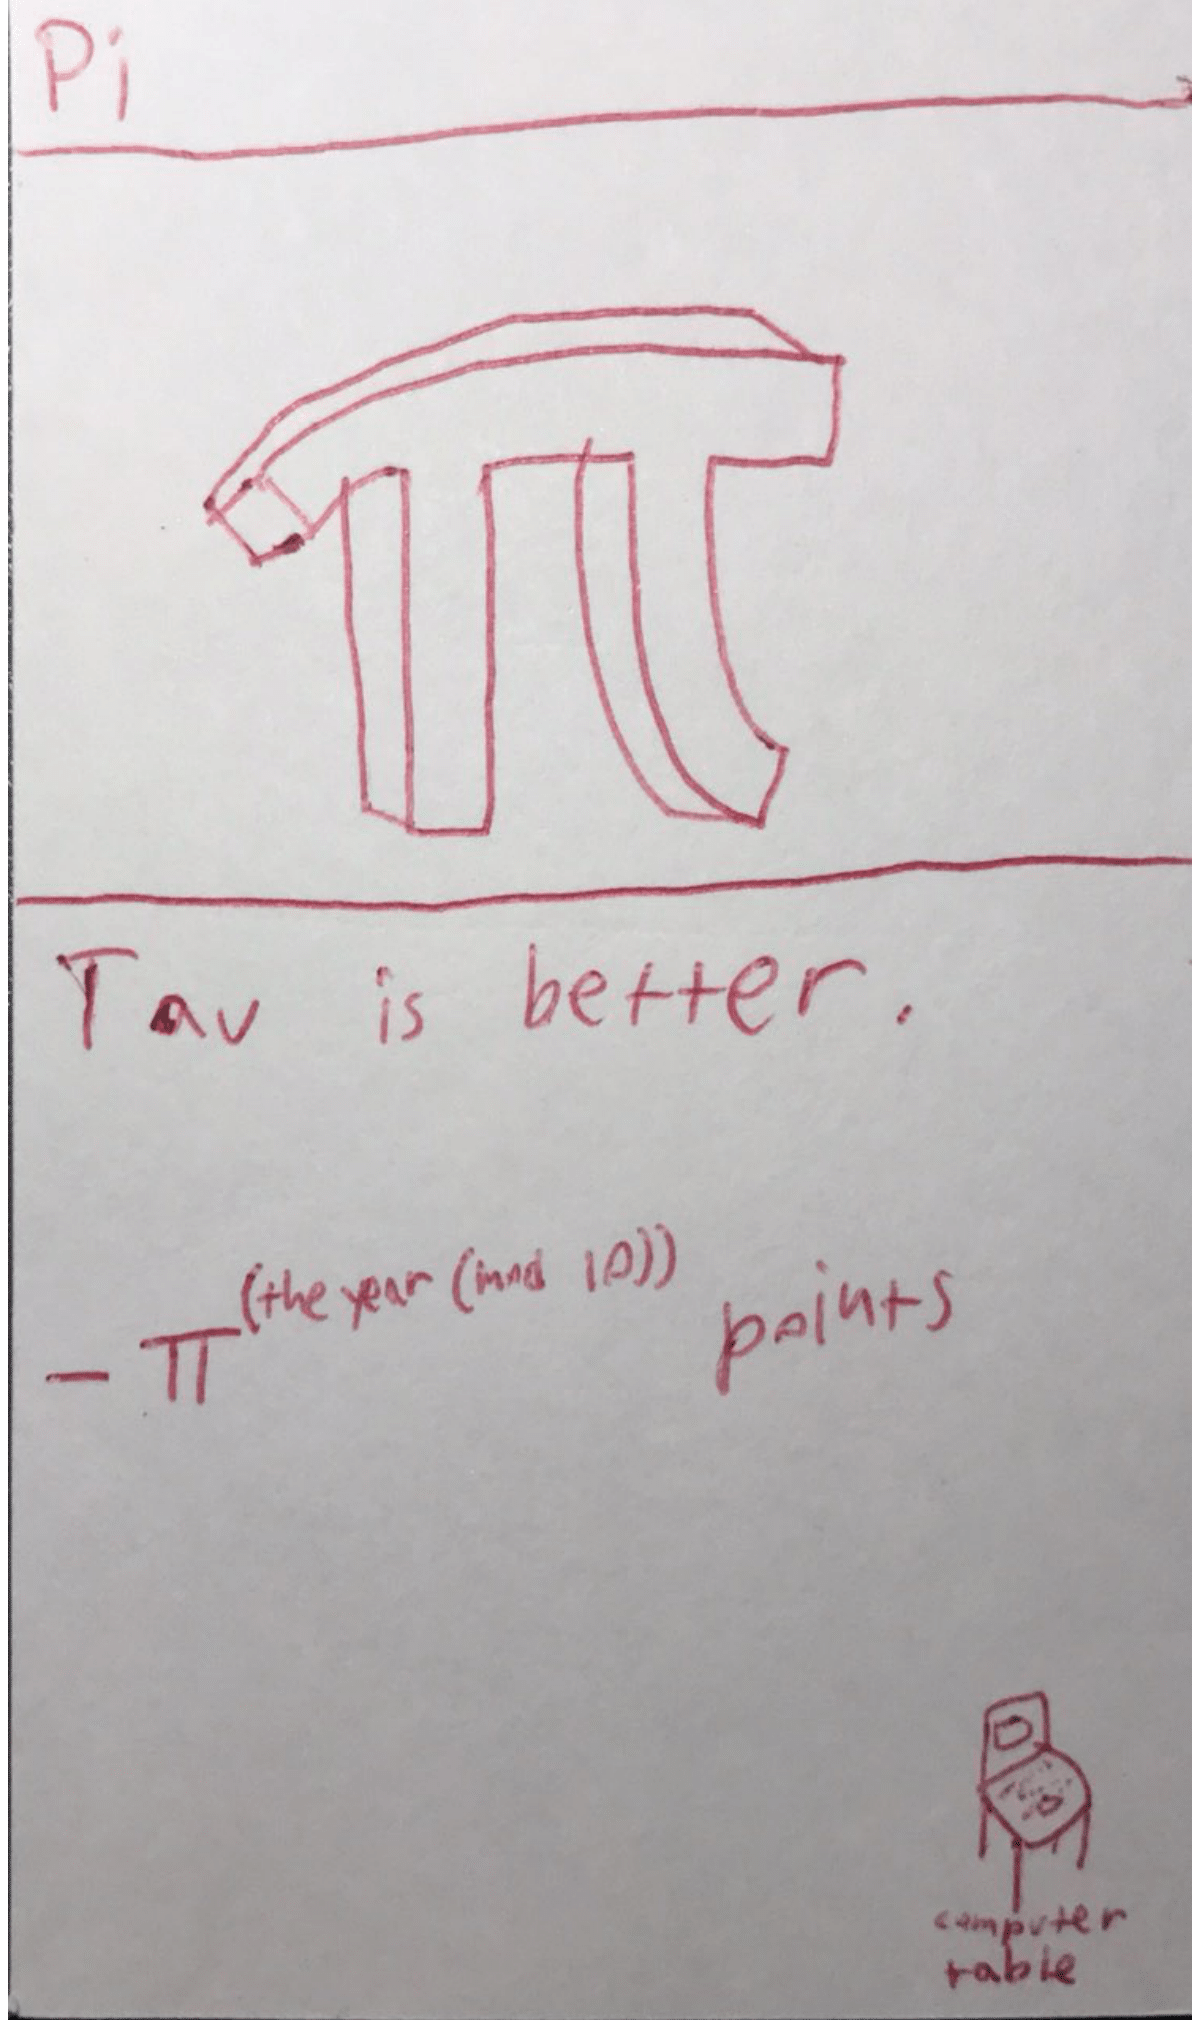 Pi
π
Tau is better.
- π^(the year (mod 10)) points
computer
table